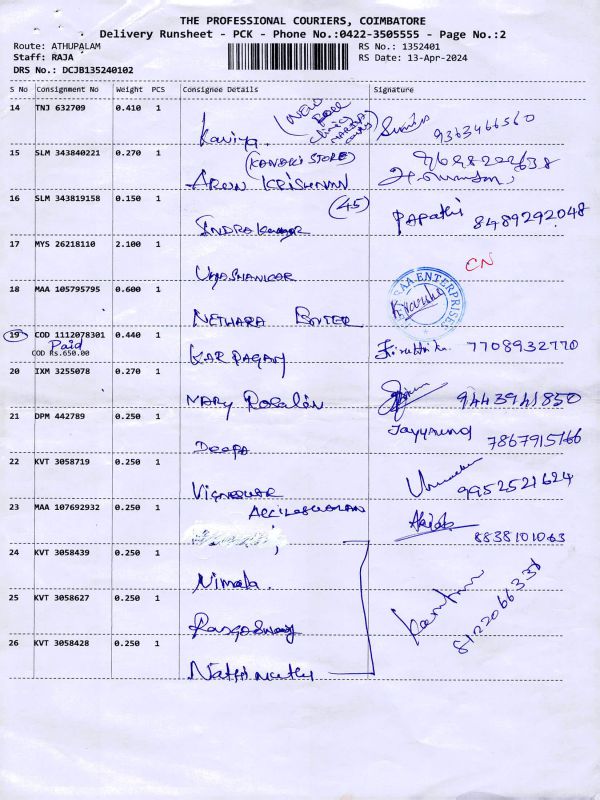 THE PROFESSIONAL COURIERS, COIMBATORE
Delivery Runsheet - PCK - Phone No.:0422-3505555 - Page No.:2
Route: ATHUPALAM
RS No.: 1352401
Staff: RAJA
RS Date: 13-Apr-2024
DRS No.: DCJB135240102
S No Consignment No Weight PCS Consignee Details Signature
14 TNJ 632709 0.410 1
Kaviya. 9363466560
15 SLM 343840221 0.270 1
(KANNAN STORE)
ARUN KRISHNAN
16 SLM 343819158 0.150 1
(45) PAPathi 8489292048
INDRAKumar
17 MYS 26218110 2.100 1
CN
18 MAA 105795795 0.600 1
ENTERPRISES
NETHARA
19 COD 1112078301 0.440 1
Paid
COD Rs.650.00
KARPAGAM 7708932770
20 IXM 3255078 0.270 1
MARY Rosalin 9443941850
21 DPM 442789 0.250 1
DEEPA 7867915166
22 KVT 3058719 0.250 1
VIGNESWAR 9952521624
23 MAA 107692932 0.250 1
8838101063
24 KVT 3058439 0.250 1
Nimala.
25 KVT 3058627 0.250 1
8122066338
26 KVT 3058428 0.250 1